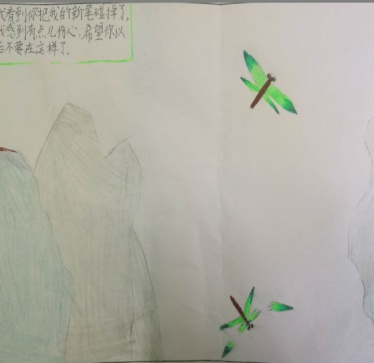 我看到你把我的新尾碰掉了，
我感到有点儿伤心，希望你以
后不要在这样了。